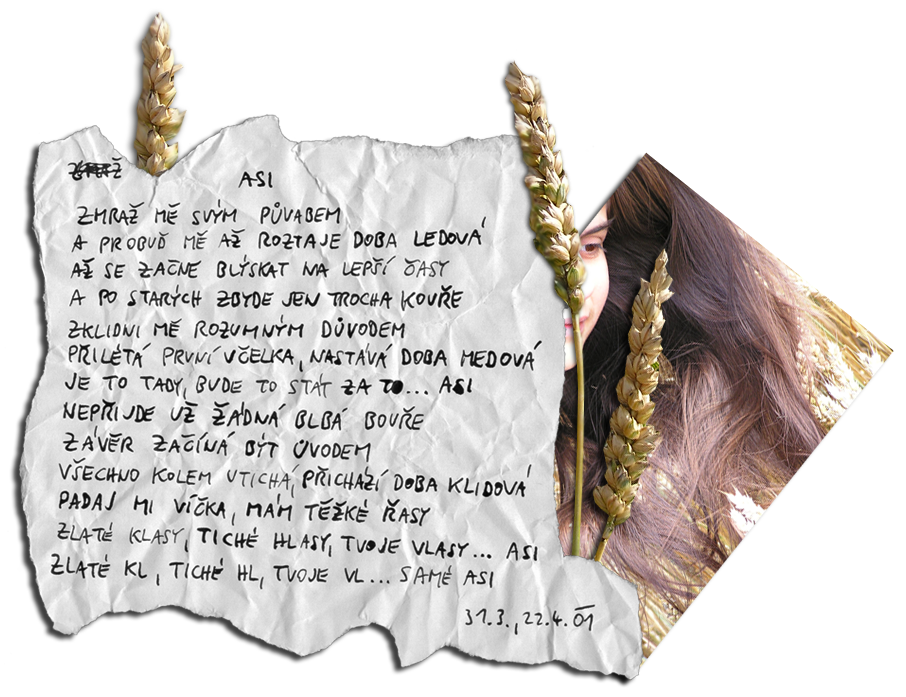 ASI
ZMRAŽ MĚ SVÝM PŮVABEM
A PROBUĎ MĚ AŽ ROZTAJE DOBA LEDOVÁ
AŽ SE ZAČNE BLÝSKAT NA LEPŠÍ ČASY
A PO STARÝCH ZBYDE JEN TROCHA KOUŘE
ZKLIDNI MĚ ROZUMNÝM DŮVODEM
PŘILÉTÁ PRVNÍ VČELKA, NASTÁVÁ DOBA MEDOVÁ
JE TO TADY, BUDE TO STÁT ZA TO... ASI
NEPŘIJDE UŽ ŽÁDNÁ BLBÁ BOUŘE
ZÁVĚR ZAČÍNÁ BÝT ÚVODEM
VŠECHNO KOLEM UTICHÁ, PŘICHÁZÍ DOBA KLIDOVÁ
PADAJ MI VÍČKA, MÁM TĚŽKÉ ŘASY
ZLATÉ KLASY, TICHÉ HLASY, TVOJE VLASY... ASI
ZLATÉ KL, TICHÉ HL, TVOJE VL... SAMÉ ASI
31.3., 22.4. 01